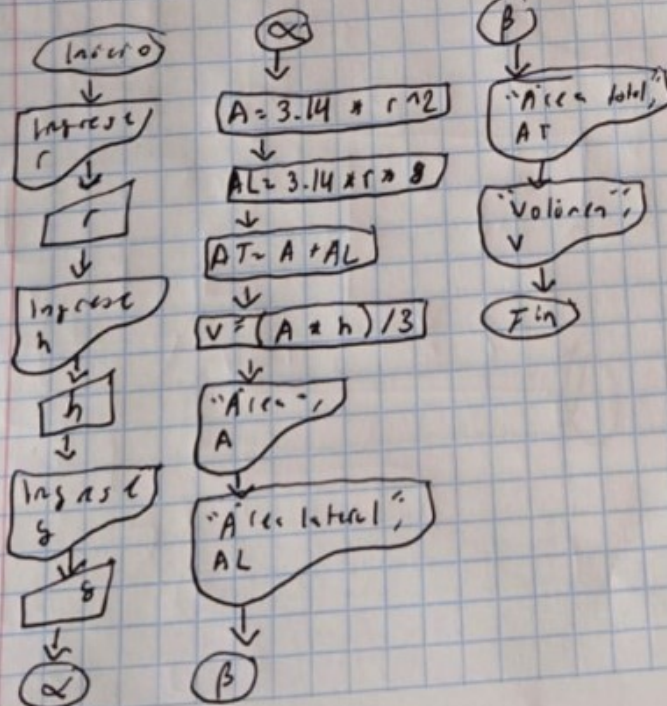 Inicio
Ingrese
r
r
Ingrese
h
h
Ingrese
g
g
α
α
A = 3.14 * r ^2
AL = 3.14 * r * g
AT = A + AL
V = (A * h) / 3
"Área",
A
"Área lateral",
AL
β
β
"Área total",
AT
"Volúmen",
V
Fin